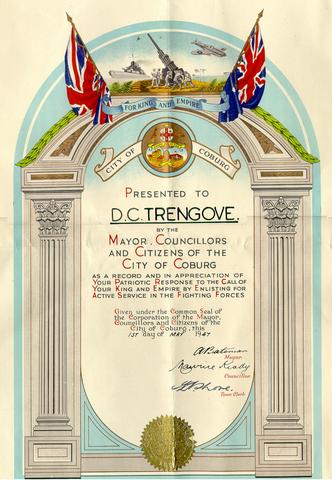 FOR KING AND EMPIRE
CITY OF COBURG
PRESENTED TO
D.C. TRENGOVE.
BY THE
MAYOR, COUNCILLORS
AND CITIZENS OF THE
CITY OF COBURG
AS A RECORD AND IN APPRECIATION OF
YOUR PATRIOTIC RESPONSE TO THE CALL OF
YOUR KING AND EMPIRE BY ENLISTING FOR
ACTIVE SERVICE IN THE FIGHTING FORCES
Given under the Common Seal of
the Corporation of the Mayor,
Councillors and Citizens of the
City of Coburg, this
1ST day of MAY 1947
Mayor.
Councillor.
Town Clerk.